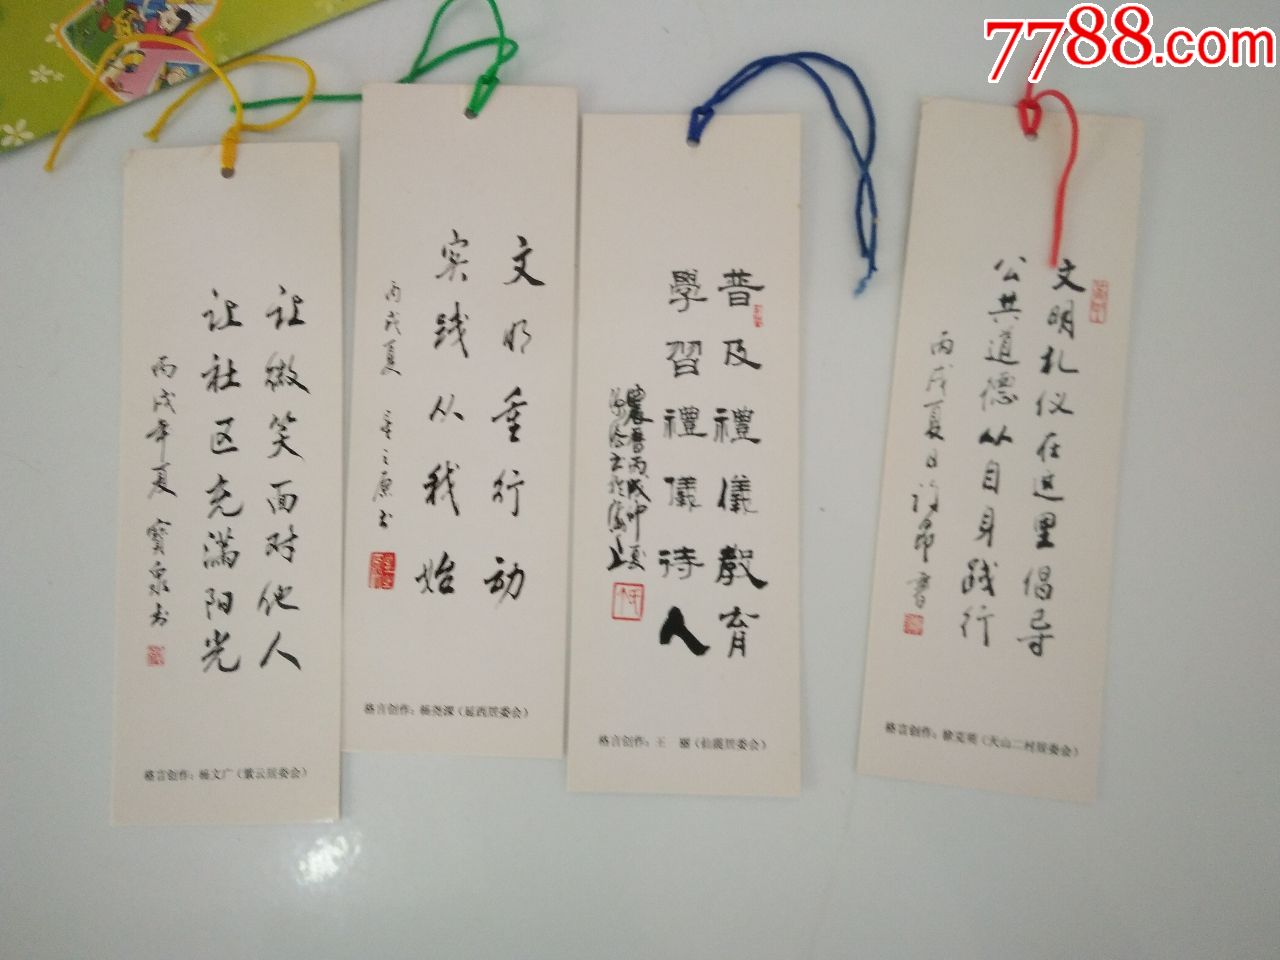 7788.com
让微笑面对他人
让社区充满阳光
丙戌年夏 寶泉书
格言创作：杨文广（紫云居委会）
文明重行动
实践从我始
丙戌夏
格言创作：杨尧深（延西居委会）
普及禮儀教育
學習禮儀待人
格言创作：王一丽（仙霞居委会）
文明礼仪在这里倡导
公共道德从自身践行
丙戌夏日
格言创作：徐克明（天山二村居委会）